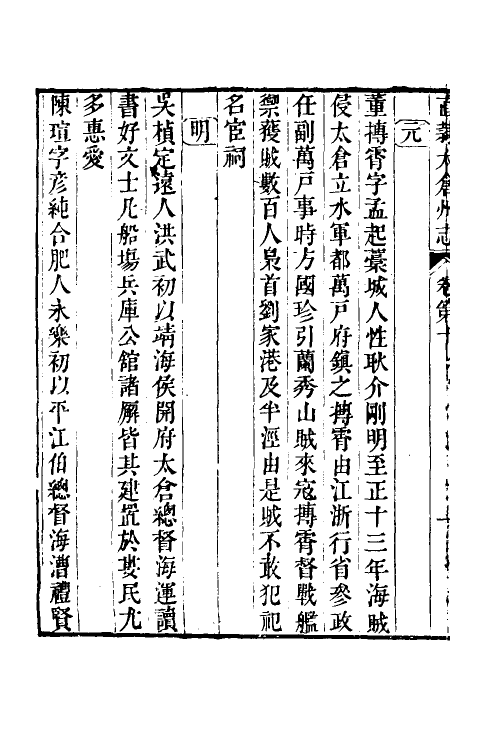 太倉州志 卷第十
元
董摶霄字孟起藁城人性耿介剛明至正十三年海賊
侵太倉立水軍都萬戸府鎮之摶霄由江浙行省參政
任副萬戸事時方國珍引蘭秀山賊來寇摶霄督戰艦
禦獲賊數百人梟首劉家港及半涇由是賊不敢犯祀
名宦祠
明
吳楨定遠人洪武初以靖海侯開府太倉總督海運讀
書好文士凡船塲兵庫公舘諸廨皆其建置於婁民尤
多惠愛
陳瑄字彦純合肥人永樂初以平江伯總督海漕禮賢